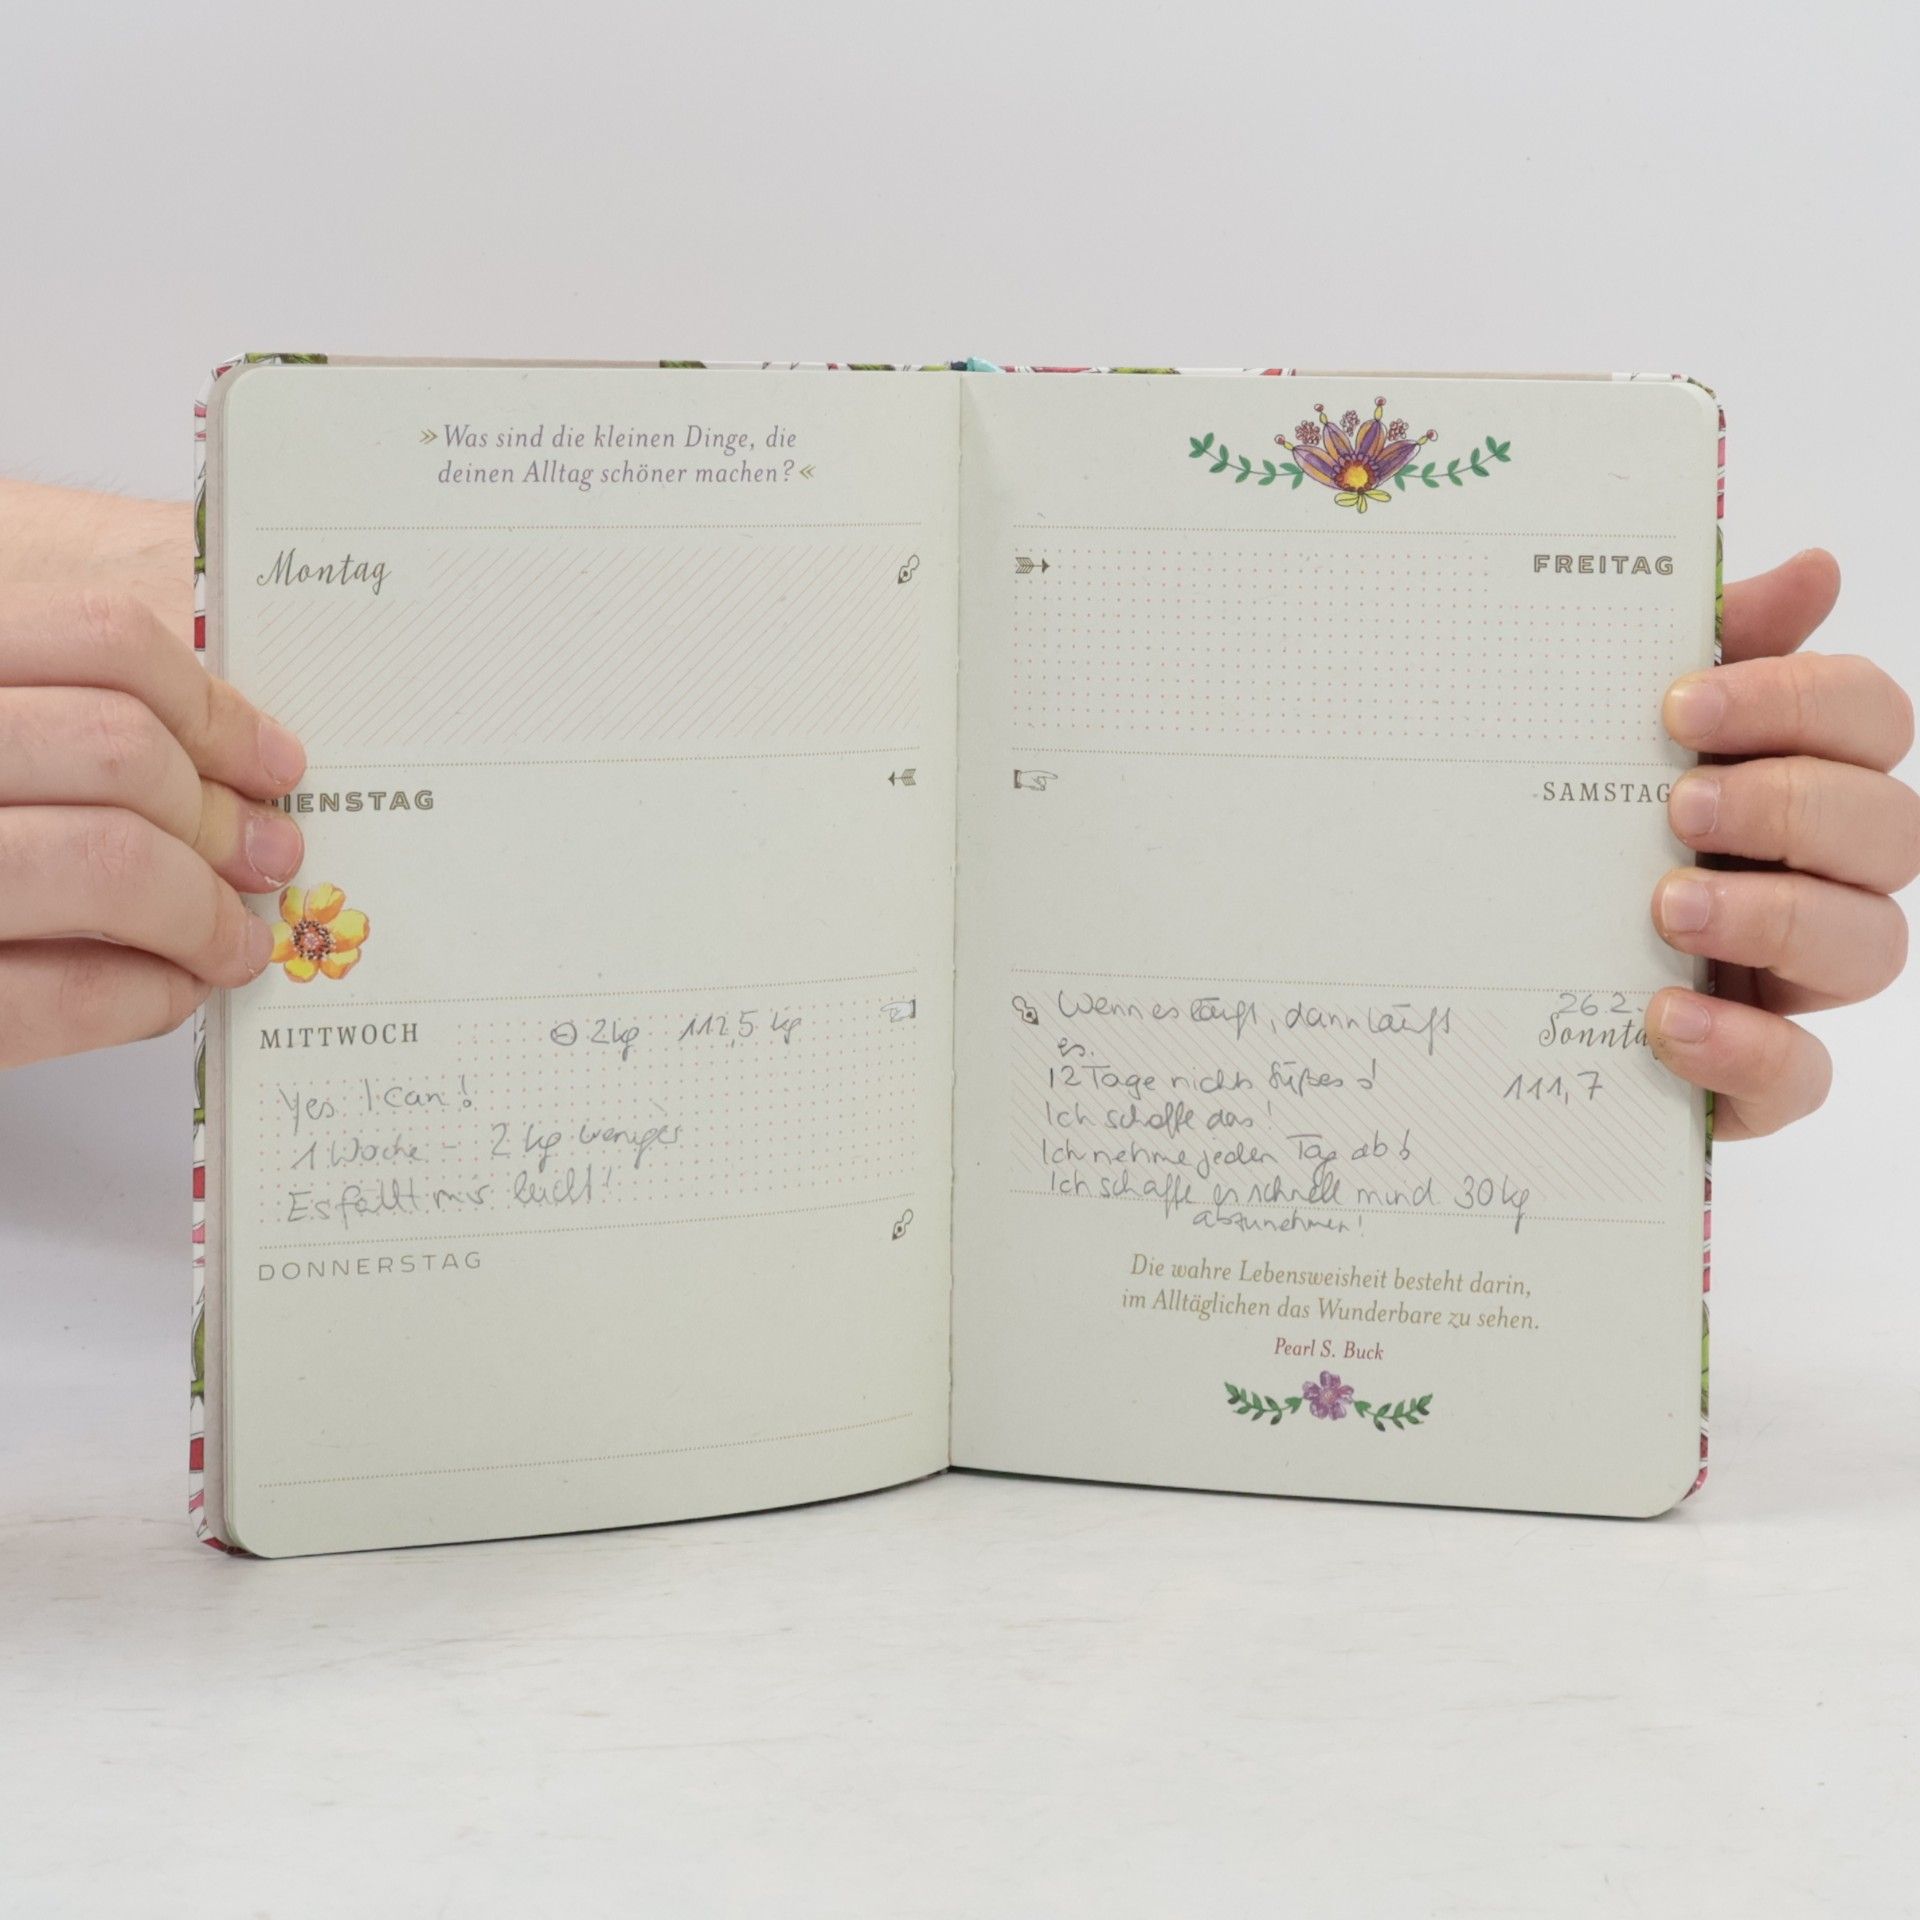 »Was sind die kleinen Dinge, die
deinen Alltag schöner machen?«
Montag
DIENSTAG
MITTWOCH
⊖ 2kg 112,5 kg
Yes I can!
1 Woche - 2 kg weniger
Es fällt mir leicht!
DONNERSTAG
FREITAG
SAMSTAG
26.2.
Sonntag
Wenn es läuft, dann läuft
es.
12 Tage nichts Süßes!
111,7
Ich schaffe das!
Ich nehme jeden Tag ab!
Ich schaffe es schnell mind. 30 kg
abzunehmen!
Die wahre Lebensweisheit besteht darin,
im Alltäglichen das Wunderbare zu sehen.
Pearl S. Buck